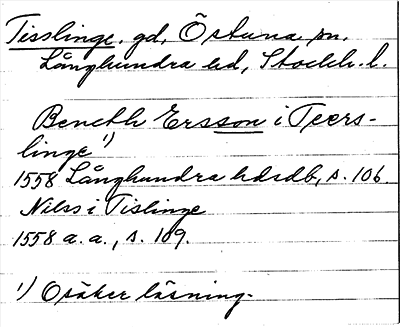 Tisslinge, gd, Östuna sn.
Långhundra hd, Stockh. l.
Bencth Ersson i Teers-
linge ¹)
1558 Långhundra hdsdb, s. 106.
Nilss i Tislinge
1558 a. a., s. 109.
¹) Osäker läsning.